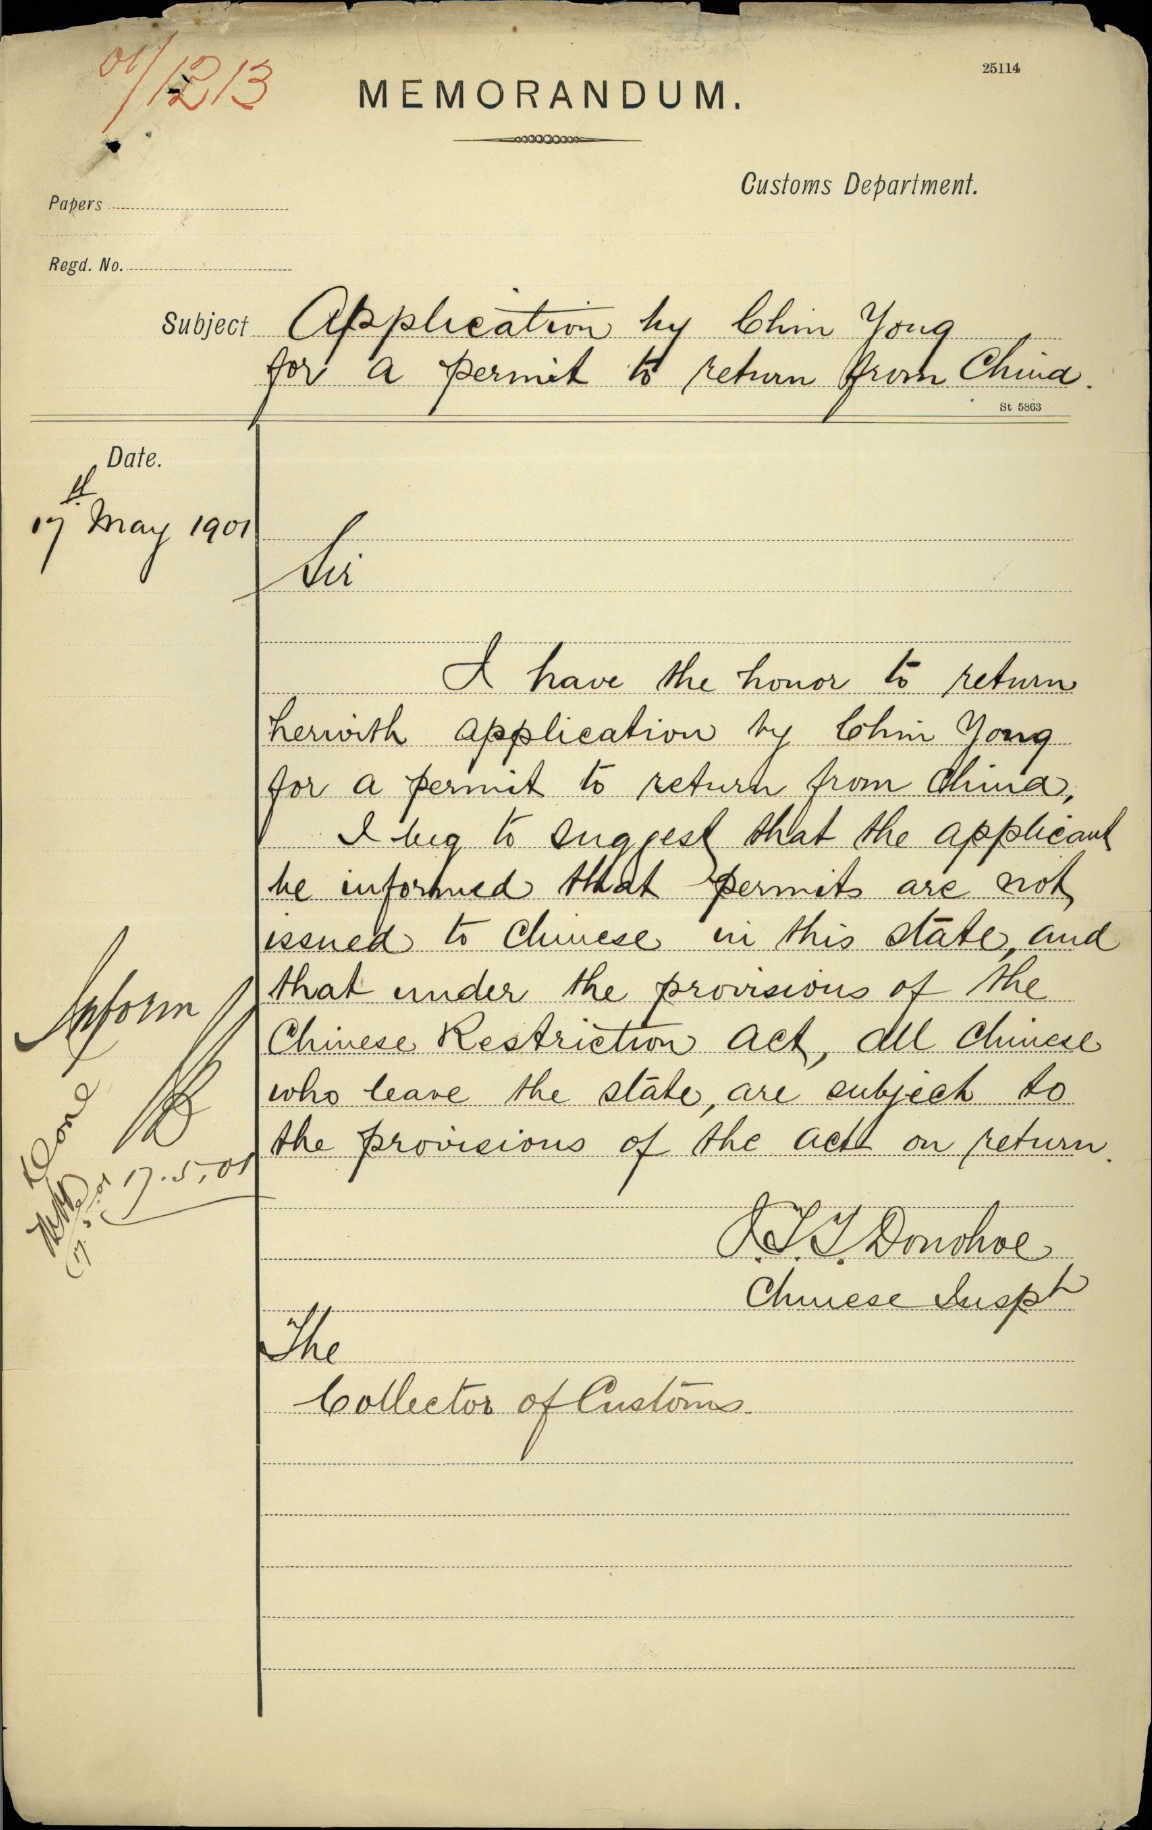 01/1213
25114
MEMORANDUM.
Customs Department.
Papers
Regd. No.
Subject Application by Chin Yong
for a permit to return from China.
St 5863
Date.
17th May 1901
Sir
I have the honor to return
herwith application by Chin Yong
for a permit to return from China,
I beg to suggest that the applicant
be informed that permits are not
issued to Chinese in this state, and
that under the provisions of the
Chinese Restriction Act, all Chinese
who leave the state, are subject to
the provisions of the act on return.
Inform
17.5.01
Done
17.5.01
J.T.T. Donohoe
Chinese Inspr
The
Collector of Customs.